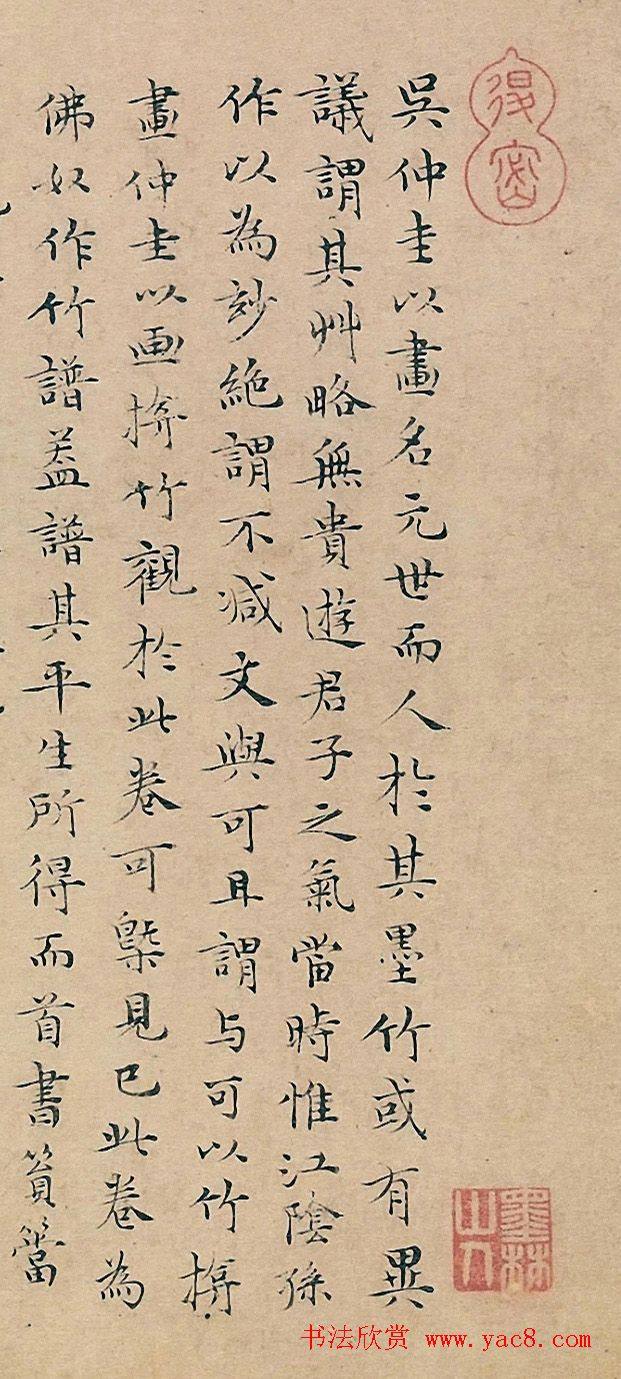 得密
吳仲圭以畫名元世而人於其墨竹或有異
議謂其艸略無貴遊君子之氣當時惟江陰孫
作以為玅絕謂不減文與可且謂与可以竹揜
畫仲圭以画揜竹觀於此卷可槩見已此卷為
佛奴作竹譜盖譜其平生所得而首書篔簹
墨林山人
书法欣赏 www.yac8.com